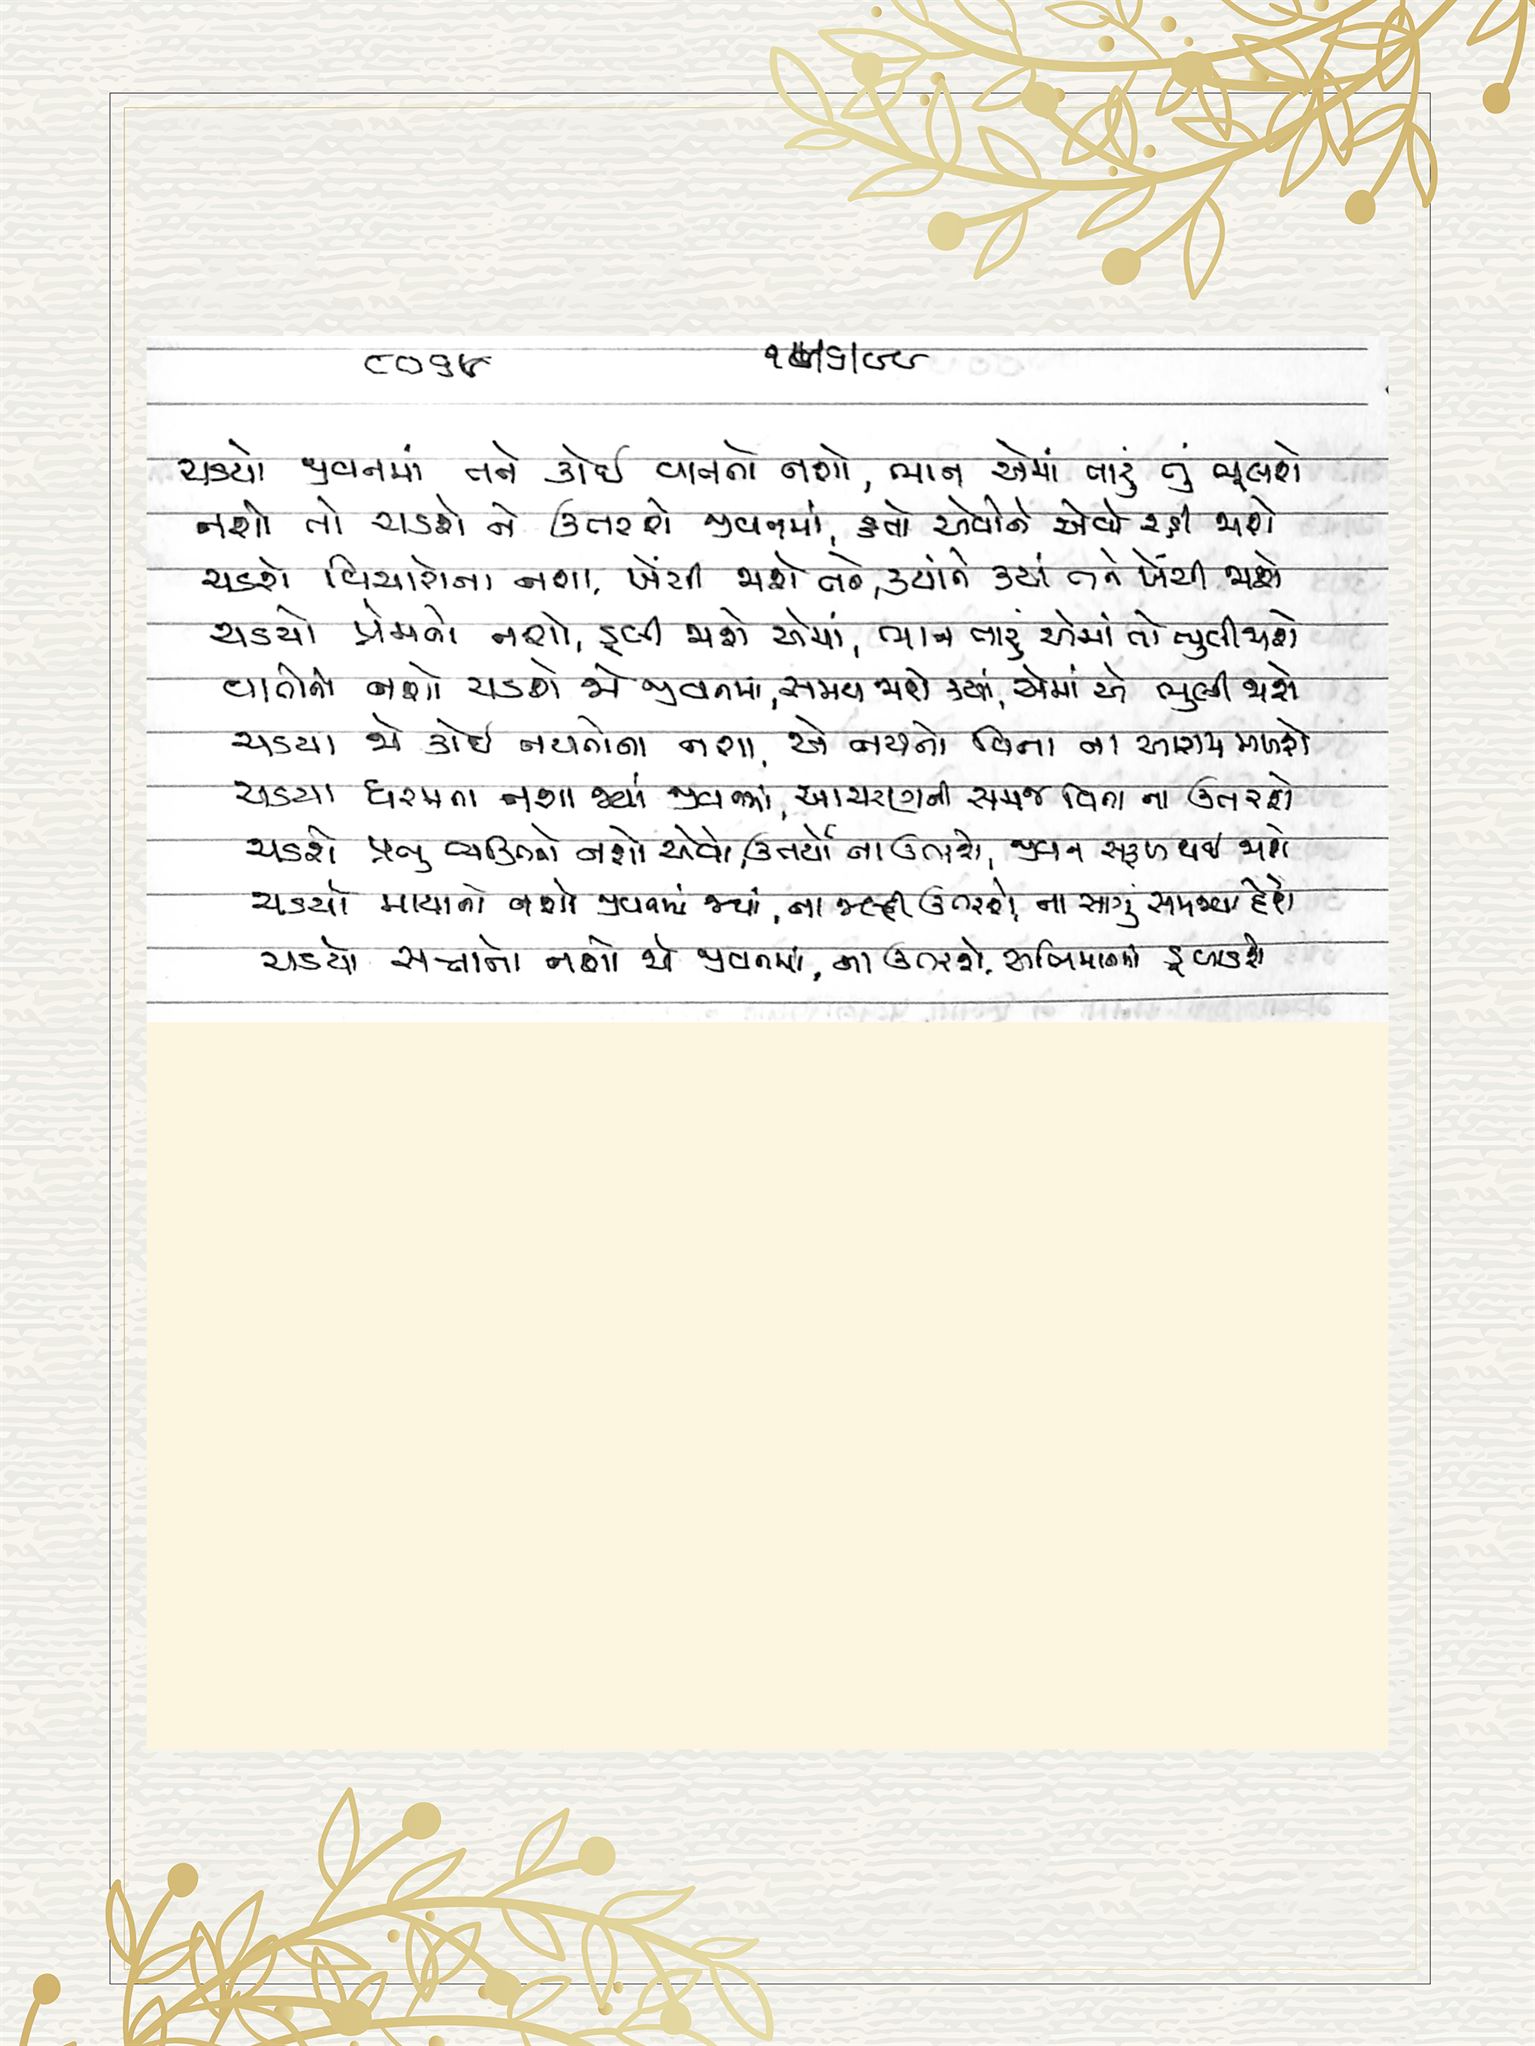 ૮૦૬૪ ૧૭/૬/૯૯
ચડયો જીવનમાં તને કોઈ વાતનો નશો, ભાન એમાં તારું તું ભૂલશે
નશો તો ચડશે ને ઉતરશે જીવનમાં, કંતો એવોને એવો રહી જાશે
ચડશે વિચારોના નશા, ખેંચી જાશે તને, ક્યાંને ક્યાં તને ખેંચી જાશે
ચડયો પ્રેમનો નશો, ડૂબી જાશે એમાં, ભાન તારું એમાં તો ભુલી જાશે
વાતોનો નશો ચડશે જો જીવનમાં, સમય જાશે ક્યાં, એમાં એ ભુલી જાશે
ચડયા જો કોઈ નયનોના નશા, એ નયનો વિના ના આરામ મળશે
ચડયા ધરમના નશા જ્યાં જીવનમાં, આચરણની સમજ વિના ના ઉતરશે
ચડશે પ્રભુ ભક્તિનો નશો એવો, ઉતર્યો ના ઉતરશે, જીવન સફળ થઈ જાશે
ચડયો માયાનો નશો જીવનમાં જ્યાં, ના જલ્દી ઉતરશે, ના સાચું સમજવા દેશે
ચડયો સત્તાનો નશો જો જીવનમાં, ના ઉતરશે, અભિમાનમાં ડૂબાડશે